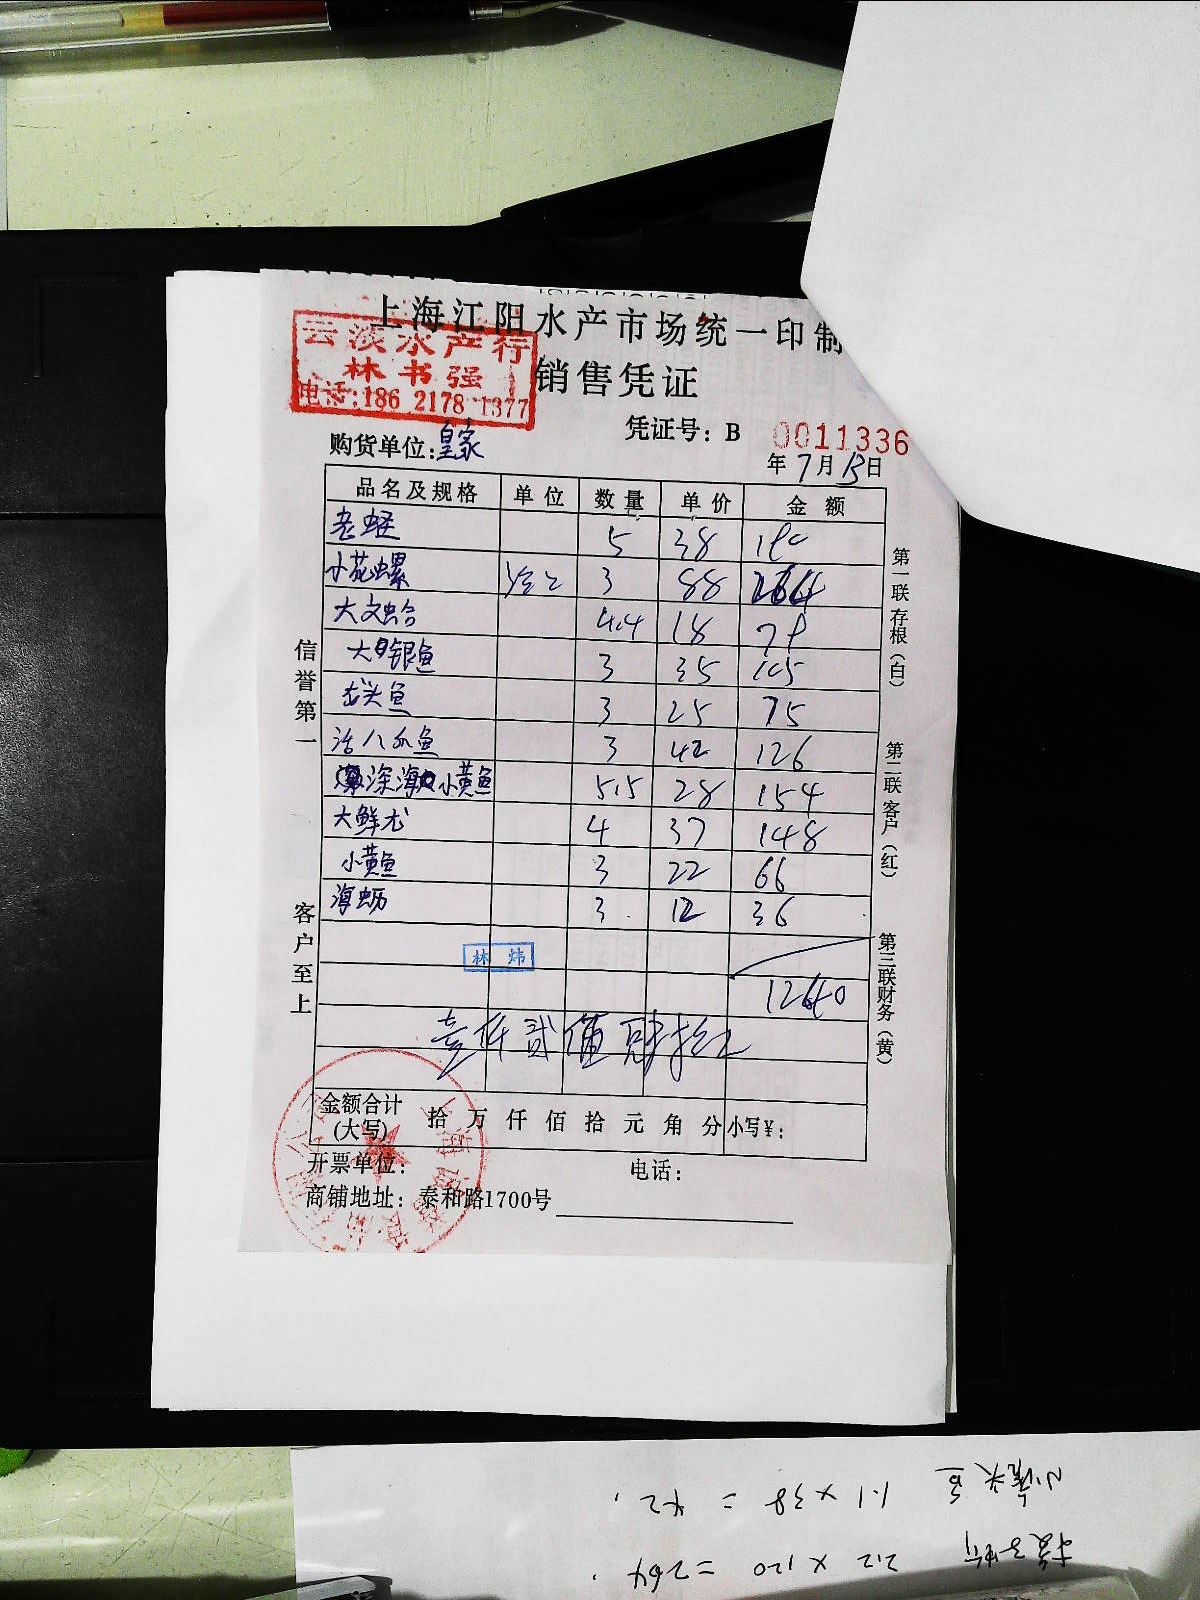 上海江阳水产市场统一印制
云淡水产行
林书强
电话:186 2178 1377
销售凭证
凭证号: B 0011336
购货单位:皇家
年7月13日
品名及规格 单位 数量 单价 金额
老蛏 5 38 190
小花螺 3 88 264
大文蛤 4.4 18 79
大目银鱼 3 35 105
龙头鱼 3 25 75
活八爪鱼 3 42 126
深海小黄鱼 5.5 28 154
大鲜尤 4 37 148
小黄鱼 3 22 66
海蛎 3 12 36
林炜
1240
金额合计(大写) 拾 万 仟 佰 拾 元 角 分 小写¥:
开票单位: 电话:
商铺地址: 泰和路1700号
信誉第一
客户至上
第一联存根(白)
第二联客户(红)
第三联财务(黄)
1.1 x 38 = 42.
2.2 x 120 = 264.